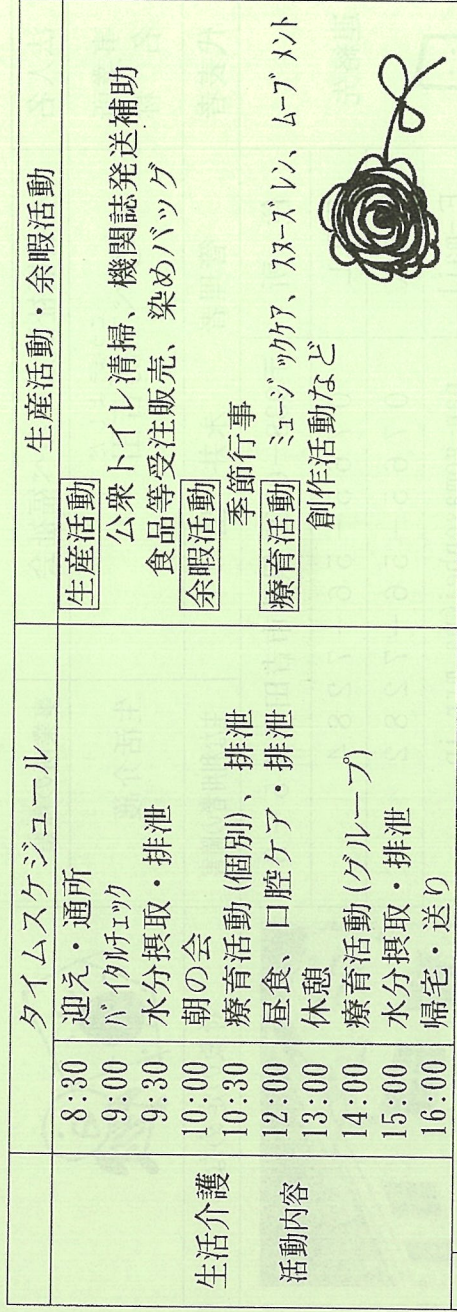 タイムスケジュール
生産活動・余暇活動
生活介護
活動内容
8:30 迎え・通所
9:00 バイタルチェック
9:30 水分摂取・排泄
10:00 朝の会
10:30 療育活動(個別)、排泄
12:00 昼食、口腔ケア・排泄
13:00 休憩
14:00 療育活動(グループ)
15:00 水分摂取・排泄
16:00 帰宅・送り
生産活動
公衆トイレ清掃、機関誌発送補助
食品等受注販売、染めバッグ
余暇活動
季節行事
療育活動 ミュージックケア、スヌーズレン、ムーブメント
創作活動など